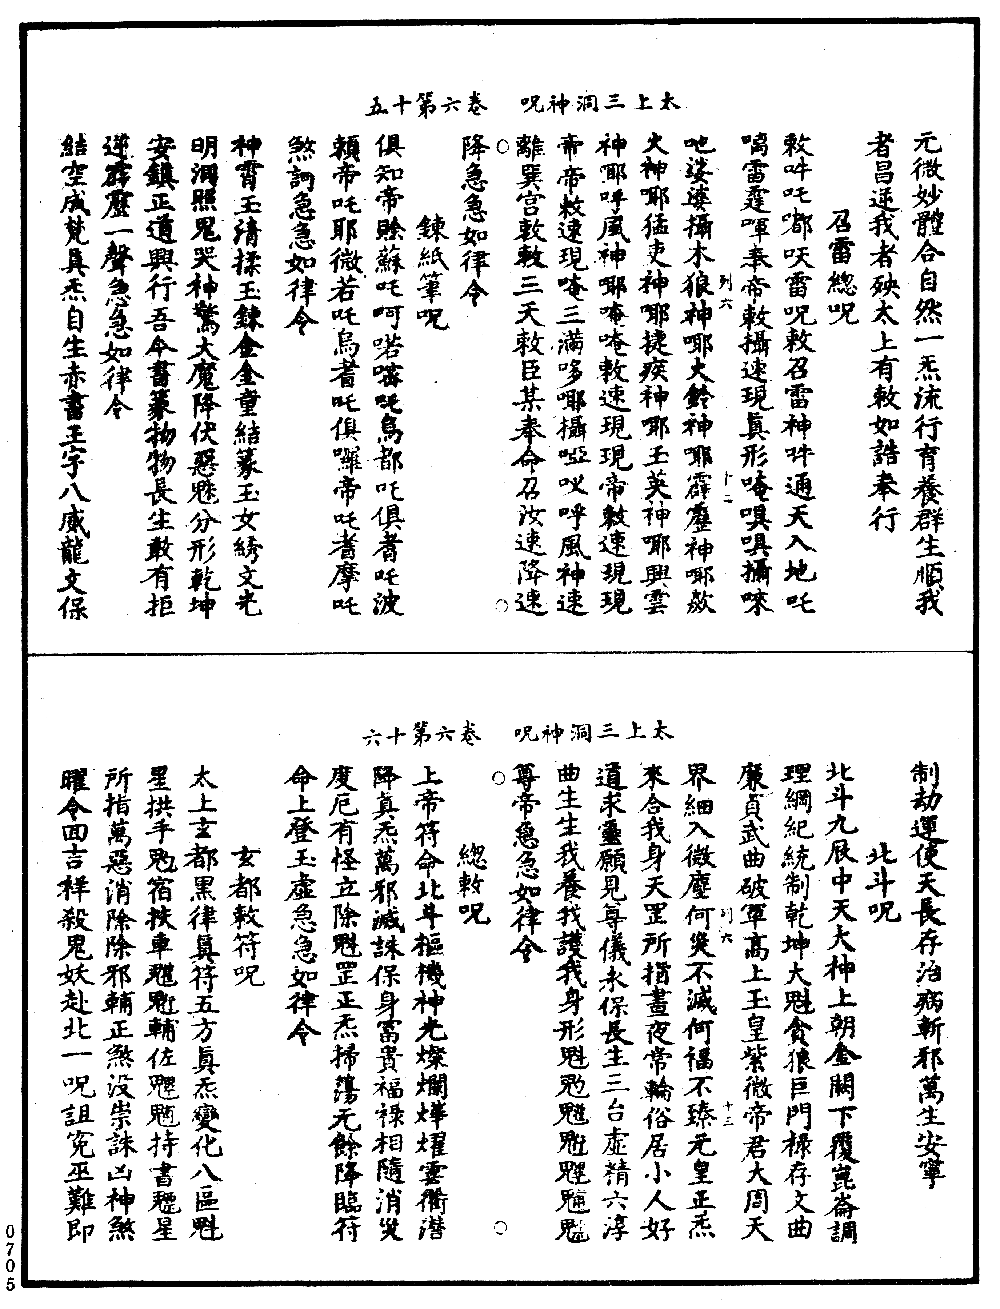 太上三洞神呪　卷六第十五
元微妙體合自然一炁流行育養群生順我
者昌逆我者殃太上有敕如誥奉行
召雷總呪
敕吽吒嘟呋雷呪敕召雷神吽通天入地吒
嗃雷霆喗奉帝敕攝速現真形唵㖵㖵攝唻
吔娑婆攝木狼神耶火鈴神耶霹靂神耶歘
火神耶猛吏神耶捷疾神耶玉英神耶興雲
神耶呼風神耶唵唵敕速現現帝敕速現現
帝帝敕速現唵三滿哆耶攝啞㕥呼風神速
離巽宮敕敕三天敕臣某奉命召汝速降速
降急急如律令
鍊紙筆呪
俱知帝賒蘇吒呵喏嚂吒烏都吒俱耆吒波
賴帝吒耶微若吒烏耆吒俱囉帝吒耆摩吒
煞訶急急如律令
神霄玉清揉玉鍊金金童結篆玉女綉文光
明洞照鬼哭神驚大魔降伏惡魅分形乾坤
安鎮正道興行吾今書篆物物長生敢有拒
逆霹靂一聲急急如律令
結空成梵真炁自生赤書玉字八威龍文保
列六
十二
太上三洞神呪　卷六第十六
制劫運使天長存治病斬邪萬生安寧
北斗呪
北斗九辰中天大神上朝金闕下覆崑崙調
理綱紀統制乾坤大魁貪狼巨門祿存文曲
廉貞武曲破軍高上玉皇紫微帝君大周天
界細入微塵何災不滅何福不臻元皇正炁
來合我身天罡所指晝夜常輪俗居小人好
道求靈願見尊儀永保長生三台虛精六淳
曲生生我養我護我身形魁𩲃䰢魓䰨魒魁
尊帝急急如律令
總敕呪
上帝符命北斗樞機神光燦爛燁燿雲衢潛
降真炁萬邪滅誅保身富貴福祿相隨消災
度厄有怪立除魁罡正炁掃蕩无餘降臨符
命上登玉虛急急如律令
玄都敕符呪
太上玄都黑律真符五方真炁變化八區魁
星拱手𩲃宿扶車䰢魓輔佐䰨魒持書星
所指萬惡消除除邪輔正煞沒祟誅凶神煞
曜令回吉祥殺鬼妖赴北一呪詛冤巫難即
列六
十三
0705